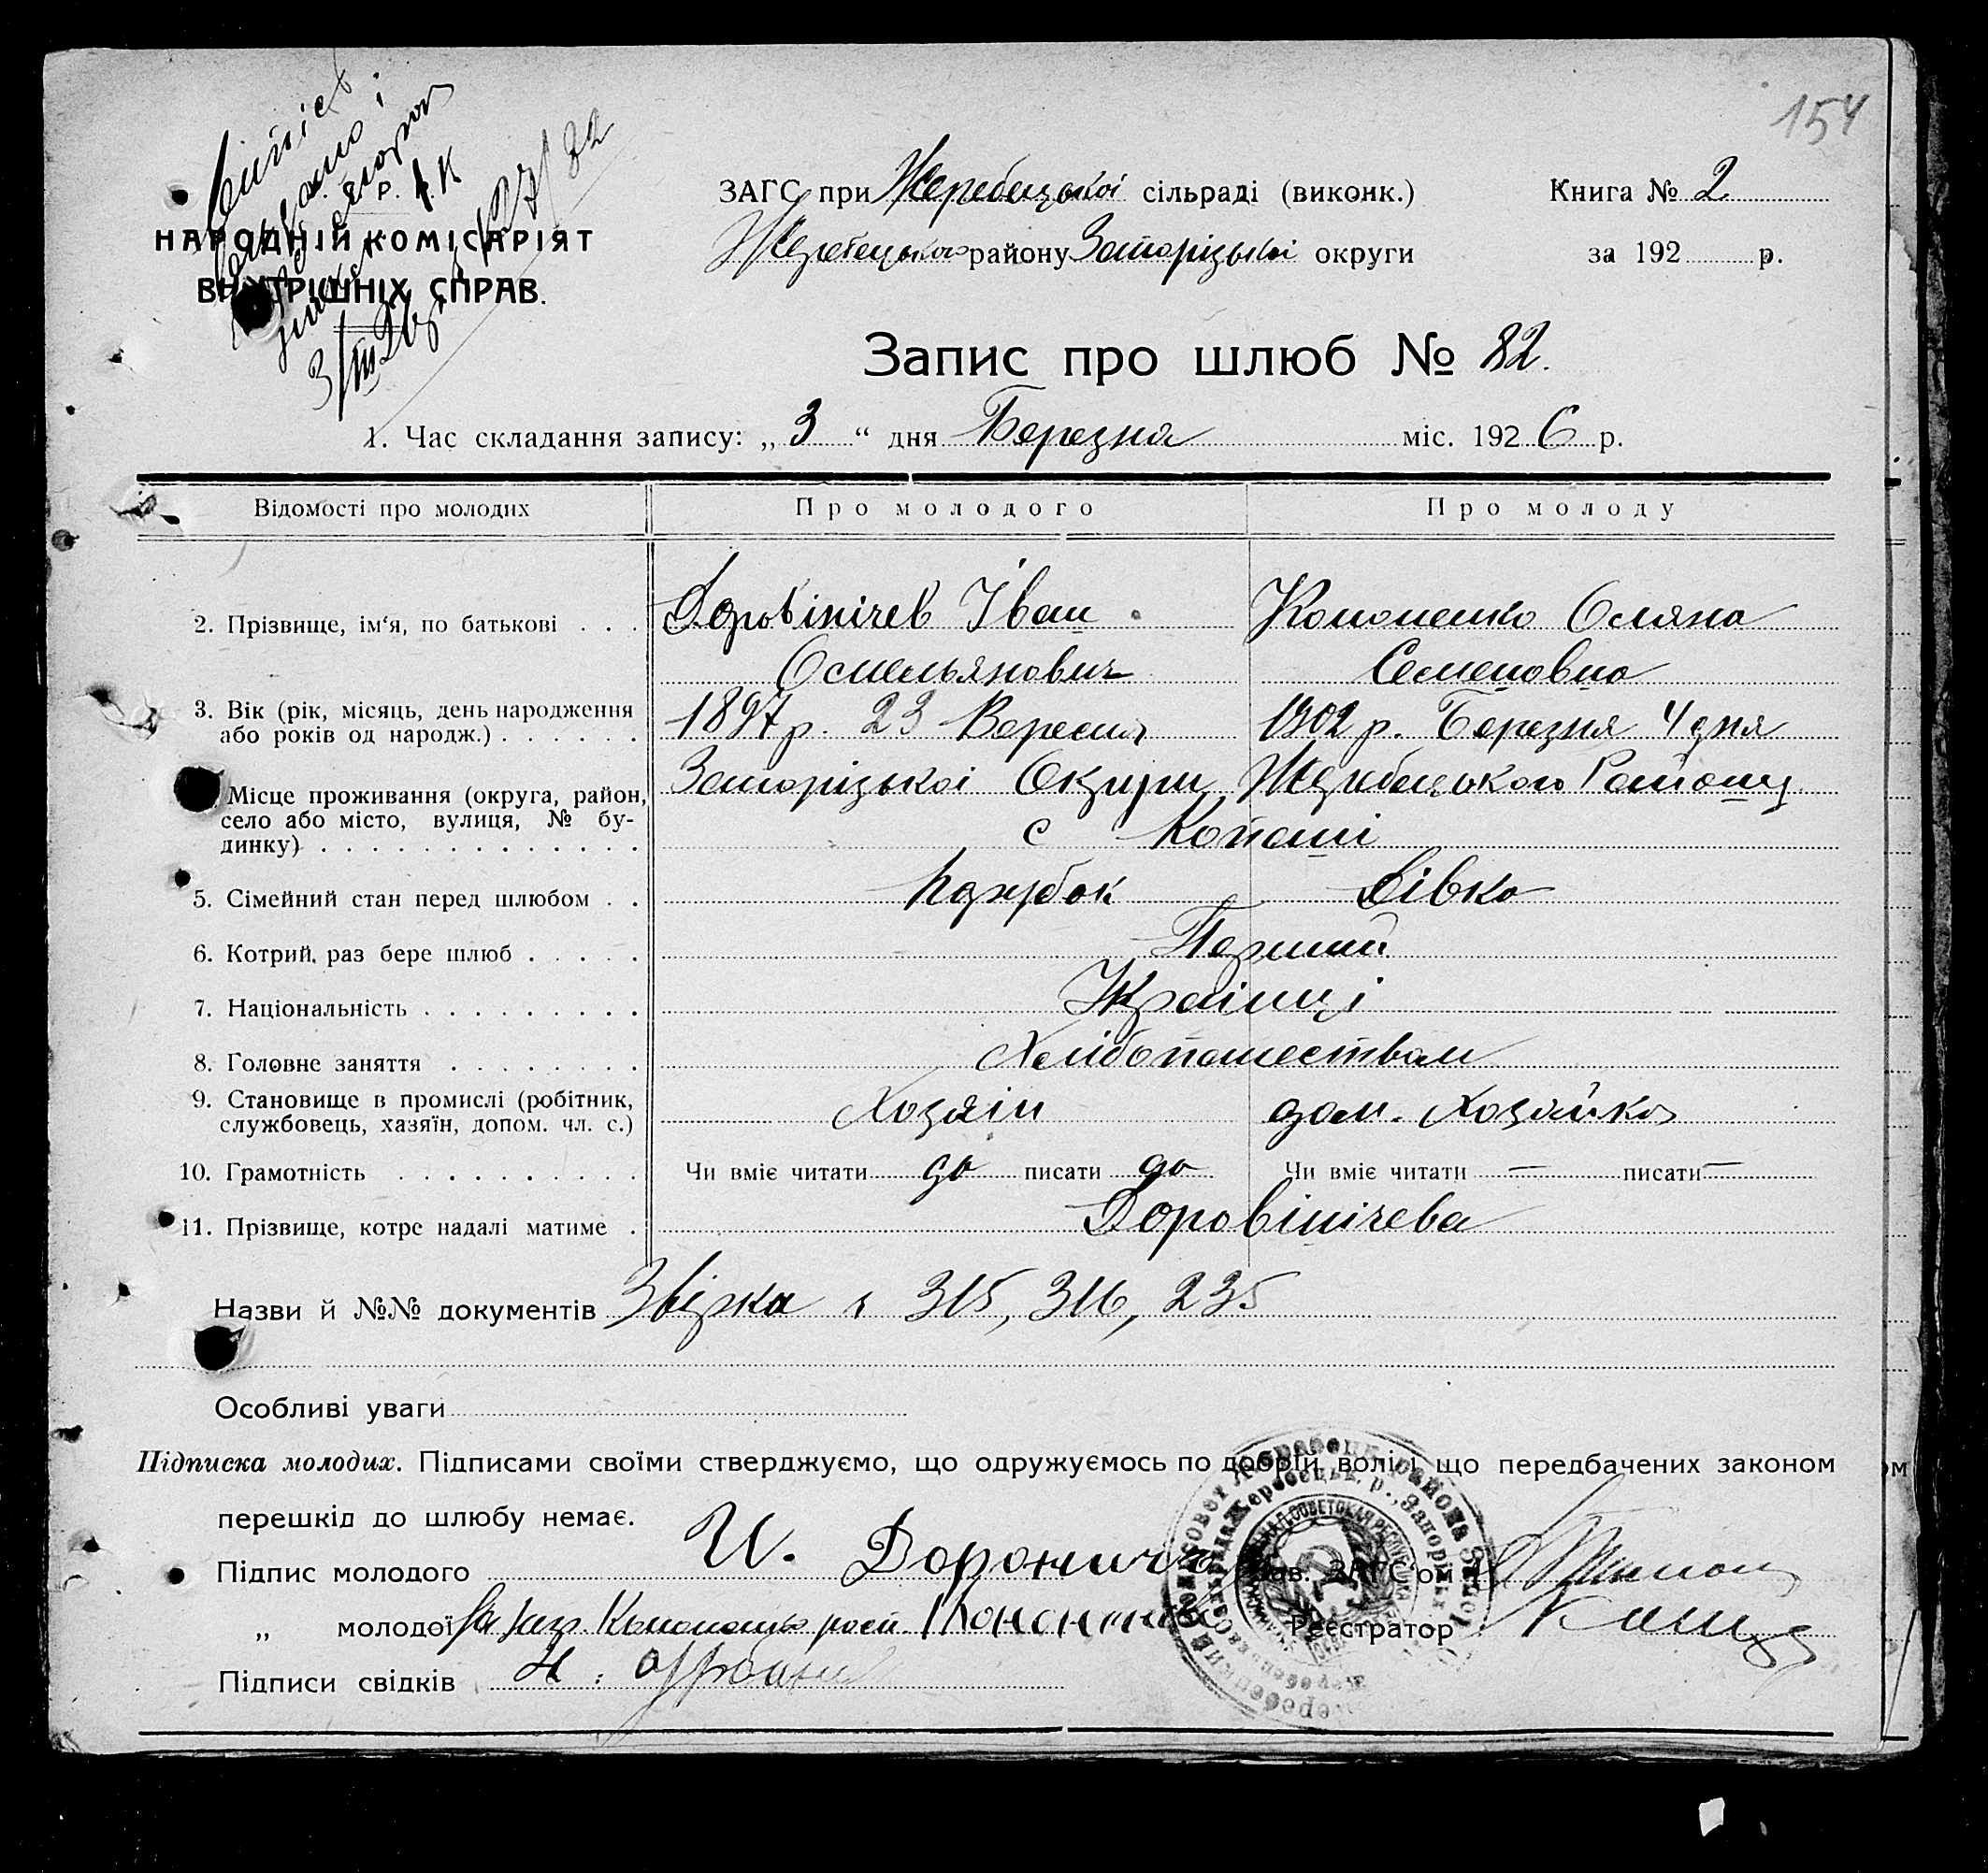 154
ЗАГС при Жеребецькоі сільраді (виконк.) Книга № 2
Жеребецького району Запорізькоі округи за 192 р.
НАРОДНІЙ КОМІСАРІЯТ
ВНУТРІШНІХ СПРАВ.
3/III 26 р. 127/82
Запис про шлюб № 82.
1. Час складання запису: „ 3 “ дня Березня міс. 1926 р.
Відомості про молодих Про молодого Про молоду
2. Прізвище, ім‘я, по батькові . . . Доровінічев Іван Кононенко Оляна
Омельянович Семеновна
3. Вік (рік, місяць, день народження
або років од народж.) . . . . . . 1897 р. 23 Вересня 1902 р. Березня 4 дня
Місце проживання (округа, район, Запорізькоі Округи Жеребецького Району
село або місто, вулиця, № бу-
динку) . . . . . . . . . . . . . с Копані
5. Сімейний стан перед шлюбом . . Парубок Дівка
6. Котрий раз бере шлюб . . . . . Перший
7. Національність . . . . . . . . . Украінці
8. Головне заняття . . . . . . . . Хлібопашеством
9. Становище в промислі (робітник,
службовець, хазяїн, допом. чл. с.) Хозяін дом. Хозяйка
10. Грамотність . . . . . . . . . . Чи вміє читати да писати да Чи вміє читати — писати —
11. Прізвище, котре надалі матиме . Доровінічева
Назви й №№ документів Звірка 315, 316, 235
Особливі уваги
Підписка молодих. Підписами своїми стверджуємо, що одружуємось по добрій волі і що передбачених законом
перешкід до шлюбу немає.
Підпис молодого И. Зав. ЗАГС'ом
„ молодої За неґр Кононенко росп. Реєстратор
Підписи свідків